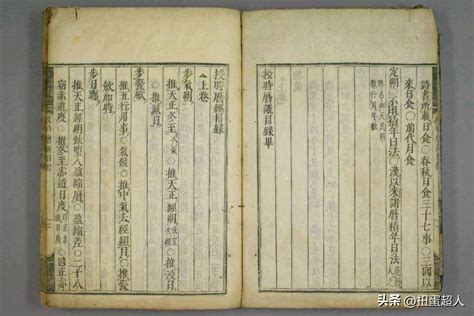 詩書所載日食○春秋日食三十七事○三國以
來日食○前代月食
定朔○不用積年日法○漢以來諸曆積年日法
授時曆議目錄畢
授時曆經目錄
上卷
步氣朔 推天正冬至○推天正經朔○推没日
○推滅日
步發斂 推五行用事○氣候○推中氣去經朔○推發
斂加時
步日躔
推天正經朔弦望入盈縮曆○盈縮差○二十八
宿赤道度○推冬至赤道日度○
头条 @扭蛋超人